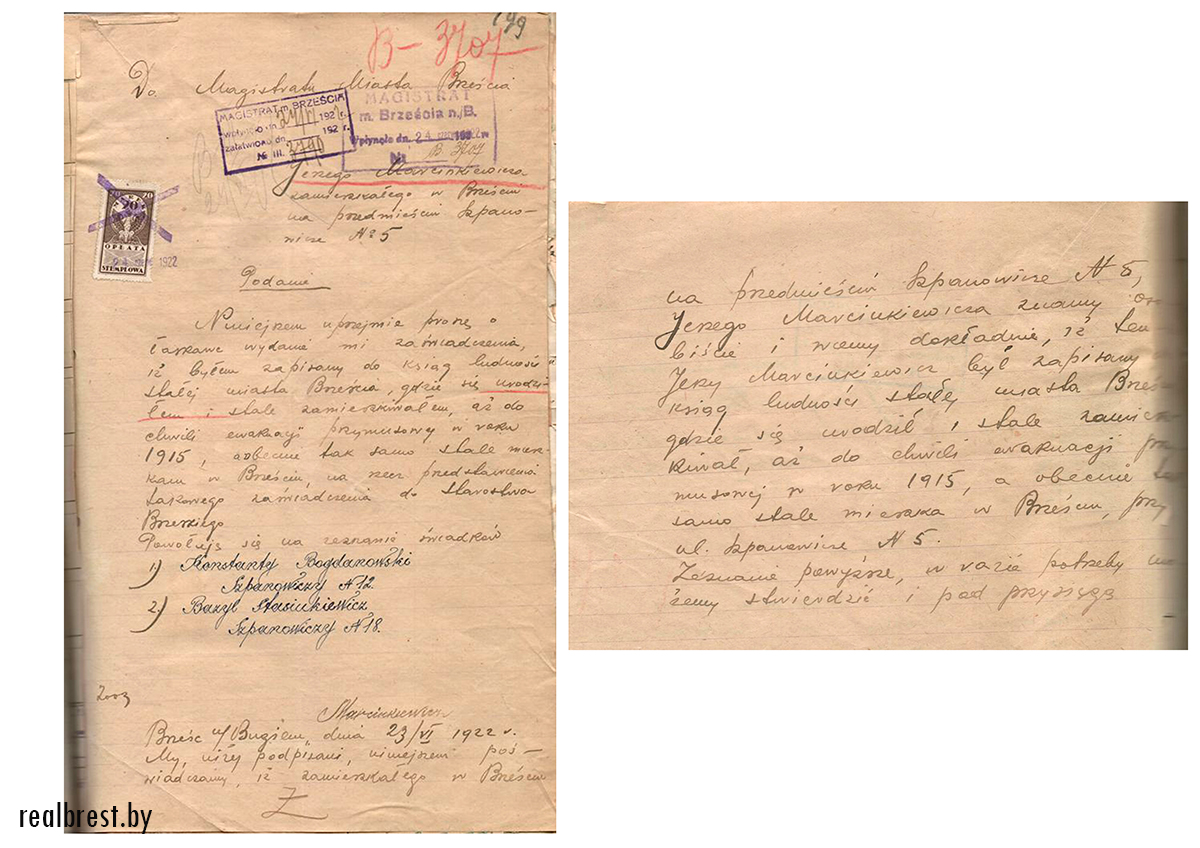 199
B - 3707
Do Magistratu Miasta Brześcia
MAGISTRAT m. BRZEŚCIA
wpłynęło dn. 24/VI 192 r.
załatwiono dn. 192 r.
№ III. 2790
MAGISTRAT
m. Brześcia n./B.
Wpłynęło dn. 24 1922
№ B 3707
Jerzego Marcinkiewicza
zamieszkałego w Brześciu
na przedmieściu Szpano-
wicze № 5
20 20
20
OPŁATA
STEMPLOWA
24 1922
Podanie
Niniejszem uprzejmie proszę o
łaskawe wydanie mi zaświadczenia,
iż byłem zapisany do ksiąg ludności
stałej miasta Brześcia, gdzie się urodzi-
łem i stale zamieszkiwałem, aż do
chwili ewakuacji przymusowej w roku
1915, a obecnie tak samo stale miesz-
kam w Brześciu, na rzecz przedstawienia
takowego zaświadczenia do Starostwa
Brzeskiego
Powołuję się na zeznanie świadków
1) Konstanty Bogdanowski
Szpanowiczy N 12.
2) Bazyl Stasiukiewicz
Szpanowiczy N 18.
Marcinkiewicz
Brześć n/Bugiem, dnia 23/VI 1922 r.
My, niżej podpisani, niniejszem poś-
wiadczamy, iż zamieszkałego w Brześciu
na przedmieściu Szpanowicze N 5,
Jerzego Marcinkiewicza znamy oso-
biście i wiemy dokładnie, iż ten
Jerzy Marcinkiewicz był zapisany
ksiąg ludności stałej miasta Brześ
gdzie się urodził i stale zamiesz
kiwał, aż do chwili ewakuacji prz
musowej w roku 1915, a obecnie ta
samo stale mieszka w Brześciu, przy
ul. Szpanowicze N 5.
Zeznanie powyższe, w razie potrzeby mo
żemy stwierdzić i pod przysięgą
realbrest.by